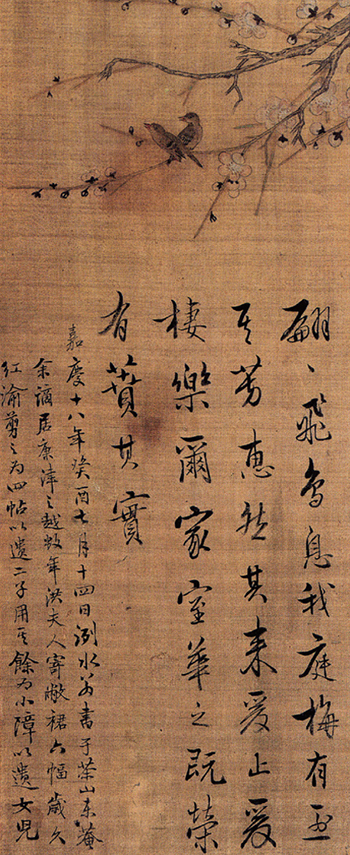 翩〻飛鳥息我庭梅有烈
其芳惠然其来爰止爰
棲樂爾家室華之既榮
有蕡其實
嘉慶十八年癸酉七月十四日洌水翁書于茶山東菴
余謫居康津之越数年洪夫人寄敝裙六幅歲久
紅渝剪之为四帖以遺二子用其餘为小障以遺女兒